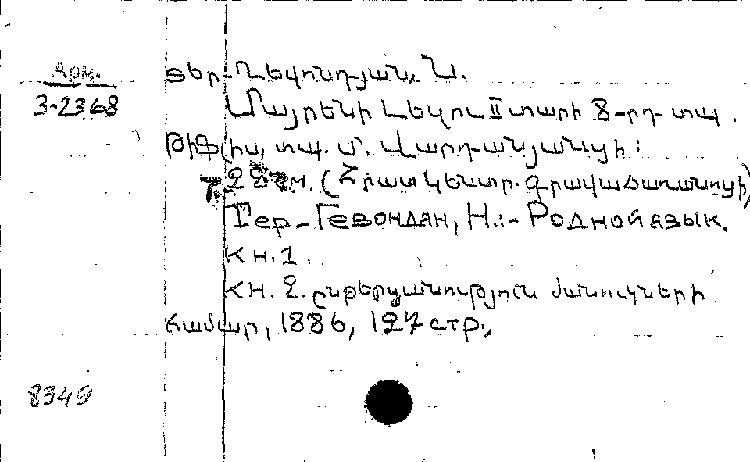 Арм.
3-2368
Տեր-Ղևոնդյան, Ն.
Մայրենի Լեզու II տարի 8-րդ տպ.
Թիֆլիս, տպ. Մ. Վարդանյանցի:
(Հրատ Կենտր. գրավաճառանոցի)
Тер-Гевондян, Н.:- Родной язык.
Кн. 1.
Кн. 2. ընթերցանություն մանուկների
համար, 1886, 127 стр.,
8340